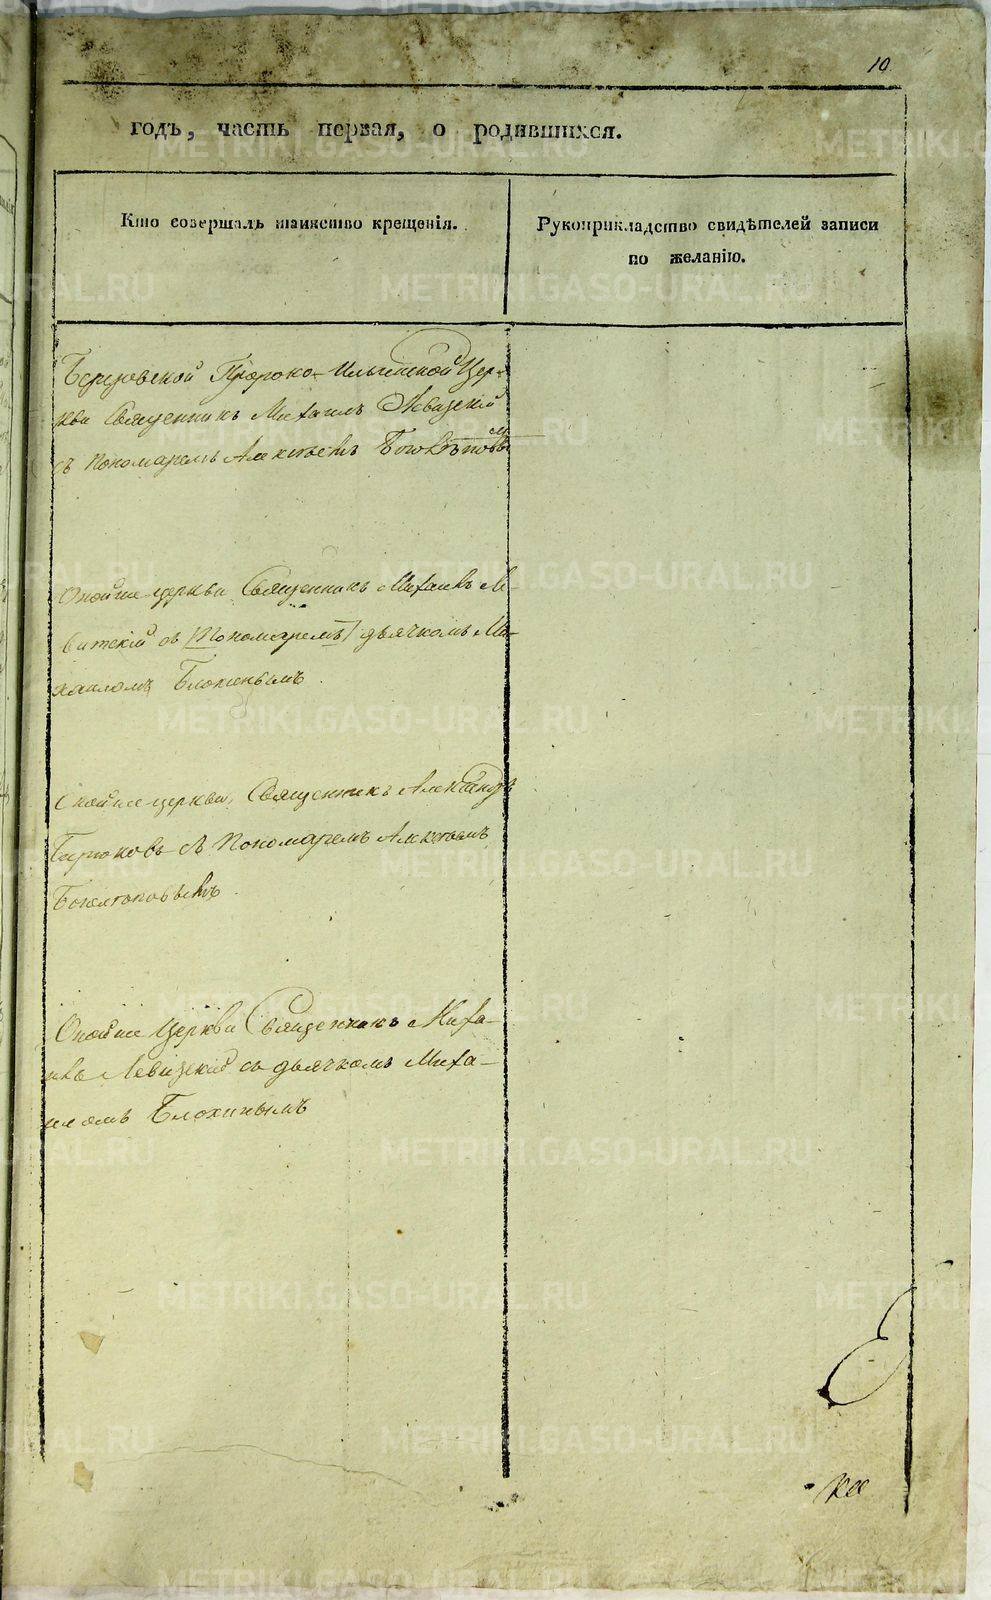 10
годъ, часть первая, о родившихся.
Кто совершалъ таинство крещенія.
Рукоприкладство свидѣтелей записи
по желанію.
Березовской Пророко-Ильинской Цер-
кви Священникъ Михаилъ Левицкій
съ Пономаремъ Алексѣемъ
Оной же церкви Священникъ Михаилъ Ле-
витскій съ [Пономаремъ] дьячкомъ Ми-
хаиломъ Блохинымъ
Оной же церкви Священникъ Александръ
Бирюковъ съ Пономаремъ Алексѣемъ
Оной же Церкви Священникъ Миха-
илъ Левицкій съ дьячкомъ Миха-
иломъ Блохинымъ
METRIKI.GASO-URAL.RU